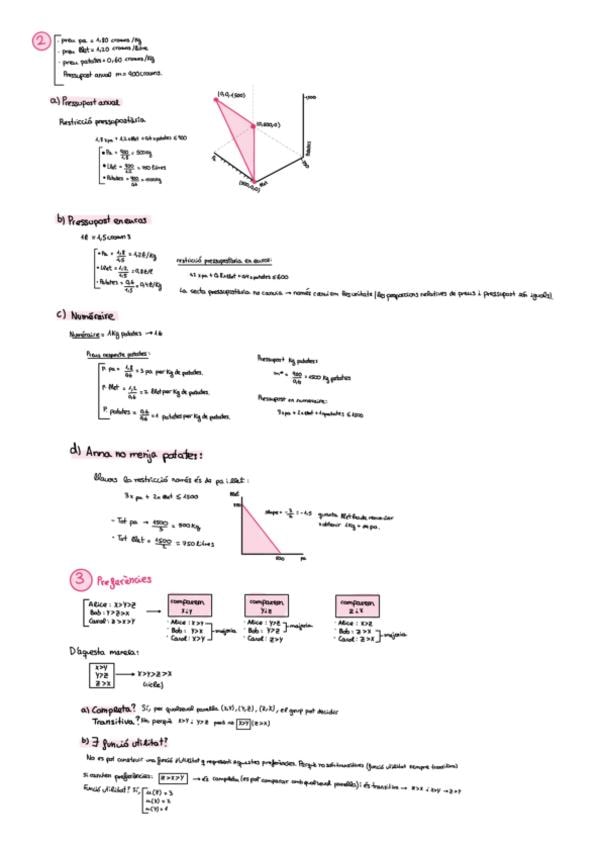 2
- preu pa = 1,80 crowns/kg
- preu llet = 1,20 crowns/litre
- preu patates = 0,60 crowns/kg
Pressupost anual m = 900 crowns.
a) Pressupost anual
Restricció pressupostària
1,8 x pa + 1,2 x llet + 0,6 x patates ≤ 900
• Pa = 900/1,8 = 500 kg
• Llet = 900/1,2 = 750 litres
• Patates = 900/0,6 = 1500 kg
(0,0,1500)
(500,0,0)
Llet
Patates
b) Pressupost en euros
1€ = 1,5 crowns
• Pa = 1,8/1,5 = 1,2 €/kg
• Llet = 1,2/1,5 = 0,8 €/l
• Patates = 0,6/1,5 = 0,4 €/kg
restricció pressupostària en euros:
1,2 x pa + 0,8 x llet + 0,4 x patates ≤ 600
La recta pressupostària no canvia → només canvien les unitats (les proporcions relatives de preus i pressupost són iguals).
c) Numéraire
Numéraire = 1 Kg patates → 1€
Preus respecte patates:
P. pa = 1,8/0,6 = 3 pa per Kg de patates.
P. llet = 1,2/0,6 = 2 llet per Kg de patates.
P. patates = 0,6/0,6 = 1 patates per Kg de patates.
Pressupost Kg patates:
m* = 900/0,6 = 1500 Kg patates
Pressupost en numéraire:
3 x pa + 2 x llet + 1 x patates ≤ 1500
d) Anna no menja patates:
Llavors la restricció només és de pa i llet:
3 x pa + 2 x llet ≤ 1500
- Tot pa → 1500/3 = 500 Kg
· Tot llet = 1500/2 = 750 litres
llet
750
500
pa
slope = - 3/2 = -1,5
quanta llet ha de renunciar
x obtenir 1Kg + de pa.
3 Preferències
Alice: X>Y>Z
Bob: Y>Z>X
Carol: Z>X>Y
comparem
X i Y
· Alice: X>Y
· Bob: Y>X
· Carol: X>Y
majoria
comparem
Y i Z
· Alice: Y>Z
· Bob: Y>Z
· Carol: Z>Y
majoria
comparem
Z i X
· Alice: X>Z
· Bob: Z>X
· Carol: Z>X
majoria
D'aquesta manera:
X>Y
Y>Z
Z>X
X>Y>Z>X
(cicle)
a) Completa? Sí, per qualsevol parella (X,Y), (Y,Z), (Z,X), el grup pot decidir
Transitiva? No perquè X>Y i Y>Z però no X>Y (Z>X)
b) ∃ funció utilitat?
No es pot construir una funció d'utilitat q representi aquestes preferències. Perquè no són transitives (funció utilitat sempre transitiva)
Si canvien preferències: Z>X>Y → és completa (es pot comparar amb qualsevol parella) i és transitiva → Z>X i X>Y → Z>Y
Funció utilitat? Sí,
u(Z) = 3
u(X) = 2
u(Y) = 1